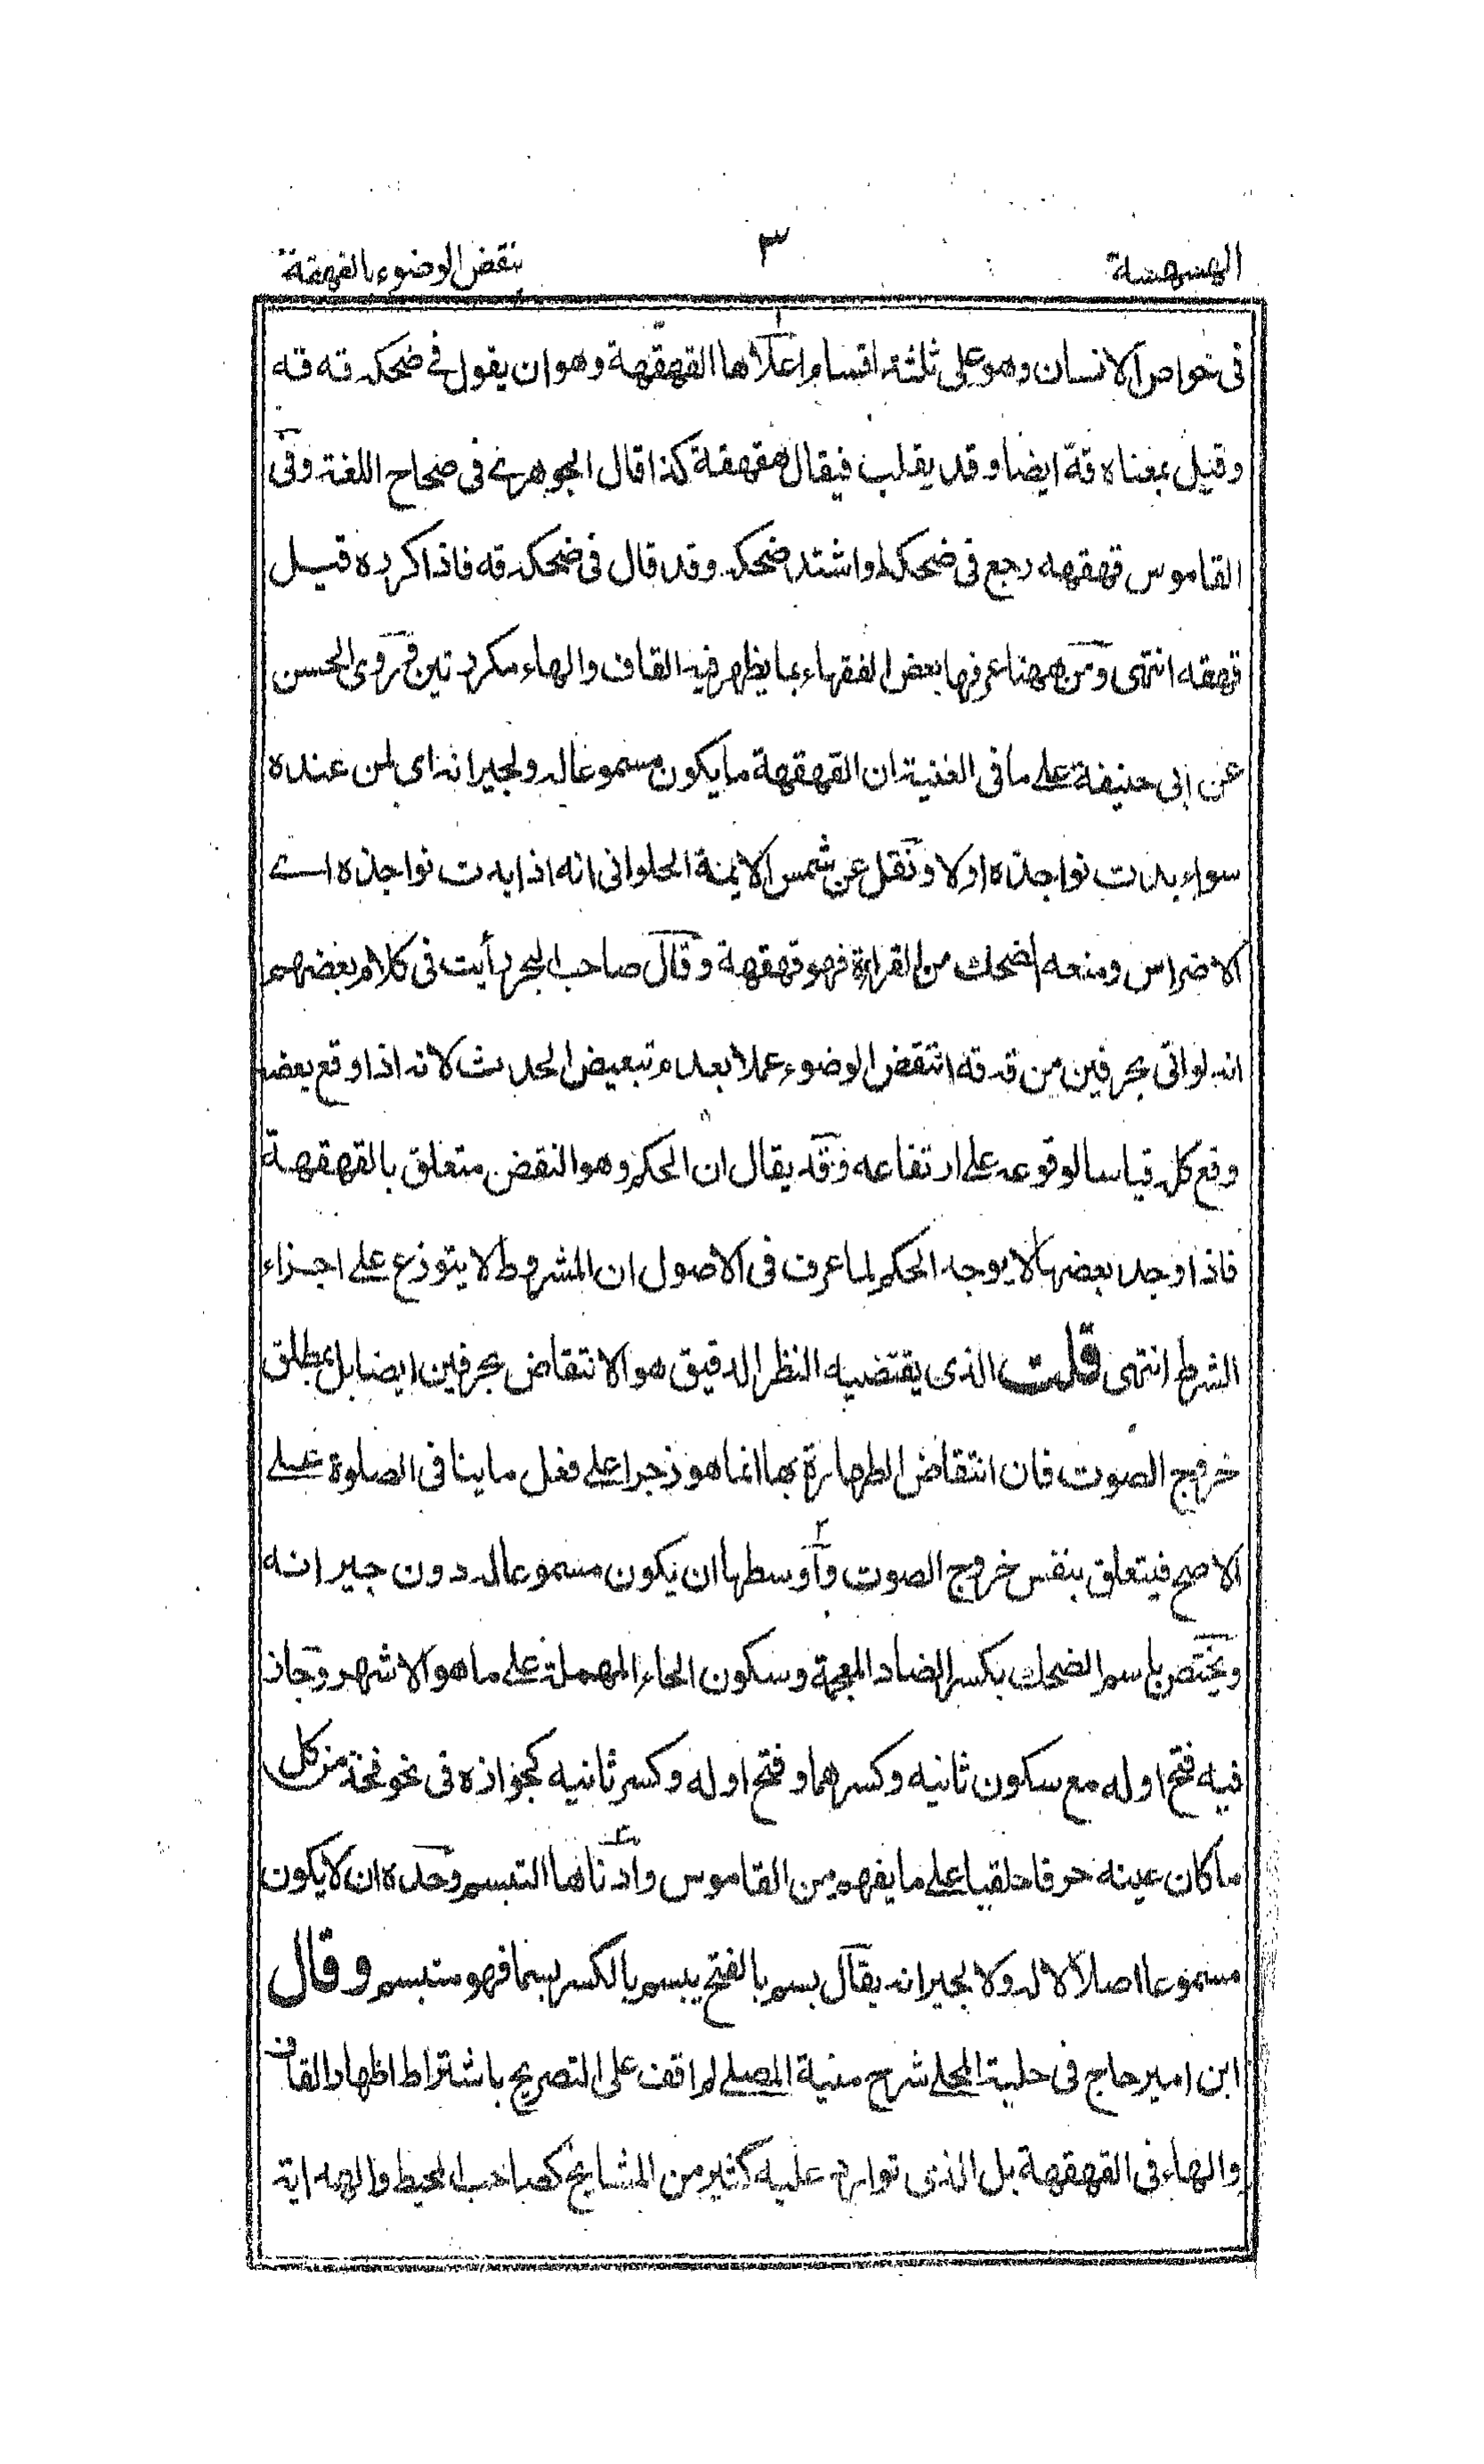 الهسهسة ٣ بنقض الوضوء بالقهقهة
فى خواص الانسان وهو على ثلثة اقسام اعلاها القهقهة وهو ان يقول فى ضحكه قه قه
وقيل بمعناه قهّ ايضا وقد يقلب فيقال هقهقة كذا قال الجوهرى فى صحاح اللغة وفى
القاموس قهقهه رجع فى ضحكه او اشتد ضحكه وقد قال فى ضحكه قه فاذا كرره قيل
قهقه انتهى ومن ههنا عرفها بعض الفقهاء بما يظهر فيه القاف والهاء مكررتين وروى الحسن
عن ابى حنيفة على ما فى الغنية ان القهقهة ما يكون مسموعا له ولجيرانه اى لمن عنده
سواء بدت نواجذه او لا ونقل عن شمس الايمة الحلوانى انه اذا بدت نواجذه اى
الاضراس ومنعه الضحك من القراءة فهو قهقهة وقال صاحب البحر رأيت فى كلام بعضهم
انه لو اتى بحرفين من قه قه انتقض الوضوء عملا بعدم تبعيض الحدث لانه اذا وقع بعضه
وقع كله قياسا لوقوعه على ارتفاعه وقد يقال ان الحكم وهو النقض متعلق بالقهقهة
فاذا وجد بعضها لا يوجد الحكم لما عرف فى الاصول ان المشروط لا يتوزع على اجزاء
الشرط انتهى قلت الذى يقتضيه النظر الدقيق هو الانتقاض بحرفين ايضا بل بمطلق
خروج الصوت فان انتقاض الطهارة بها انما هو زجرا على فعل ما ينافى الصلوة على
الاصح فيتعلق بنفس خروج الصوت وأوسطها ان يكون مسموعا له دون جيرانه
ويختص باسم الضحك بكسر الضاد المعجمة وسكون الحاء المهملة على ما هو الاشهر وجاز
فيه فتح اوله مع سكون ثانيه وكسرهما وفتح اوله وكسر ثانيه كجوازه فى نحو فخذ من كل
ما كان عينه حرفا حلقيا على ما يفهم من القاموس وأدناها التبسم وحده ان لا يكون
مسموعا اصلا لا له ولا لجيرانه يقال بسم بالفتح يبسم بالكسر بسما فهو متبسم وقال
ابن امير حاج فى حلية المجلى شرح منية المصلى لم اقف على التصريح باشتراط اظهار القاف
والهاء فى القهقهة بل الذى توارد عليه كثير من المشايخ كصاحب المحيط والهداية